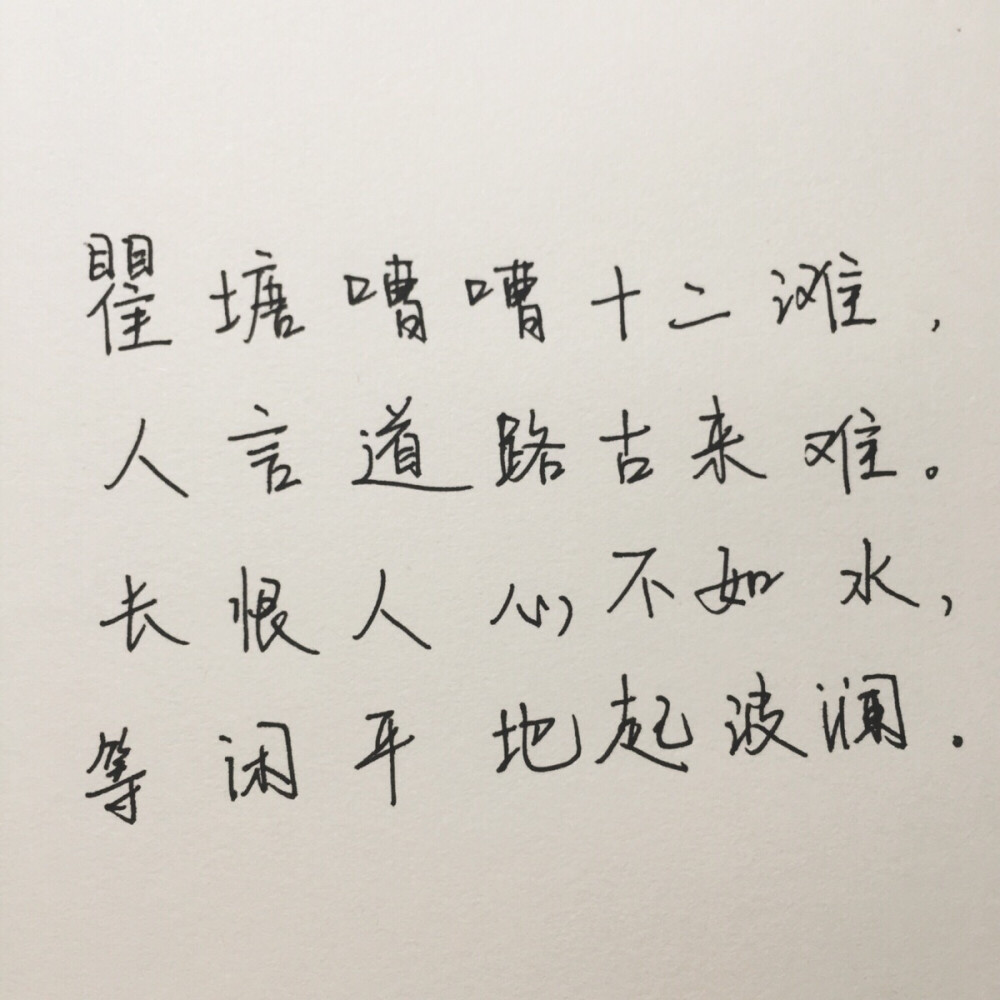 瞿塘嘈嘈十二滩，
人言道路古来难。
长恨人心不如水，
等闲平地起波澜.